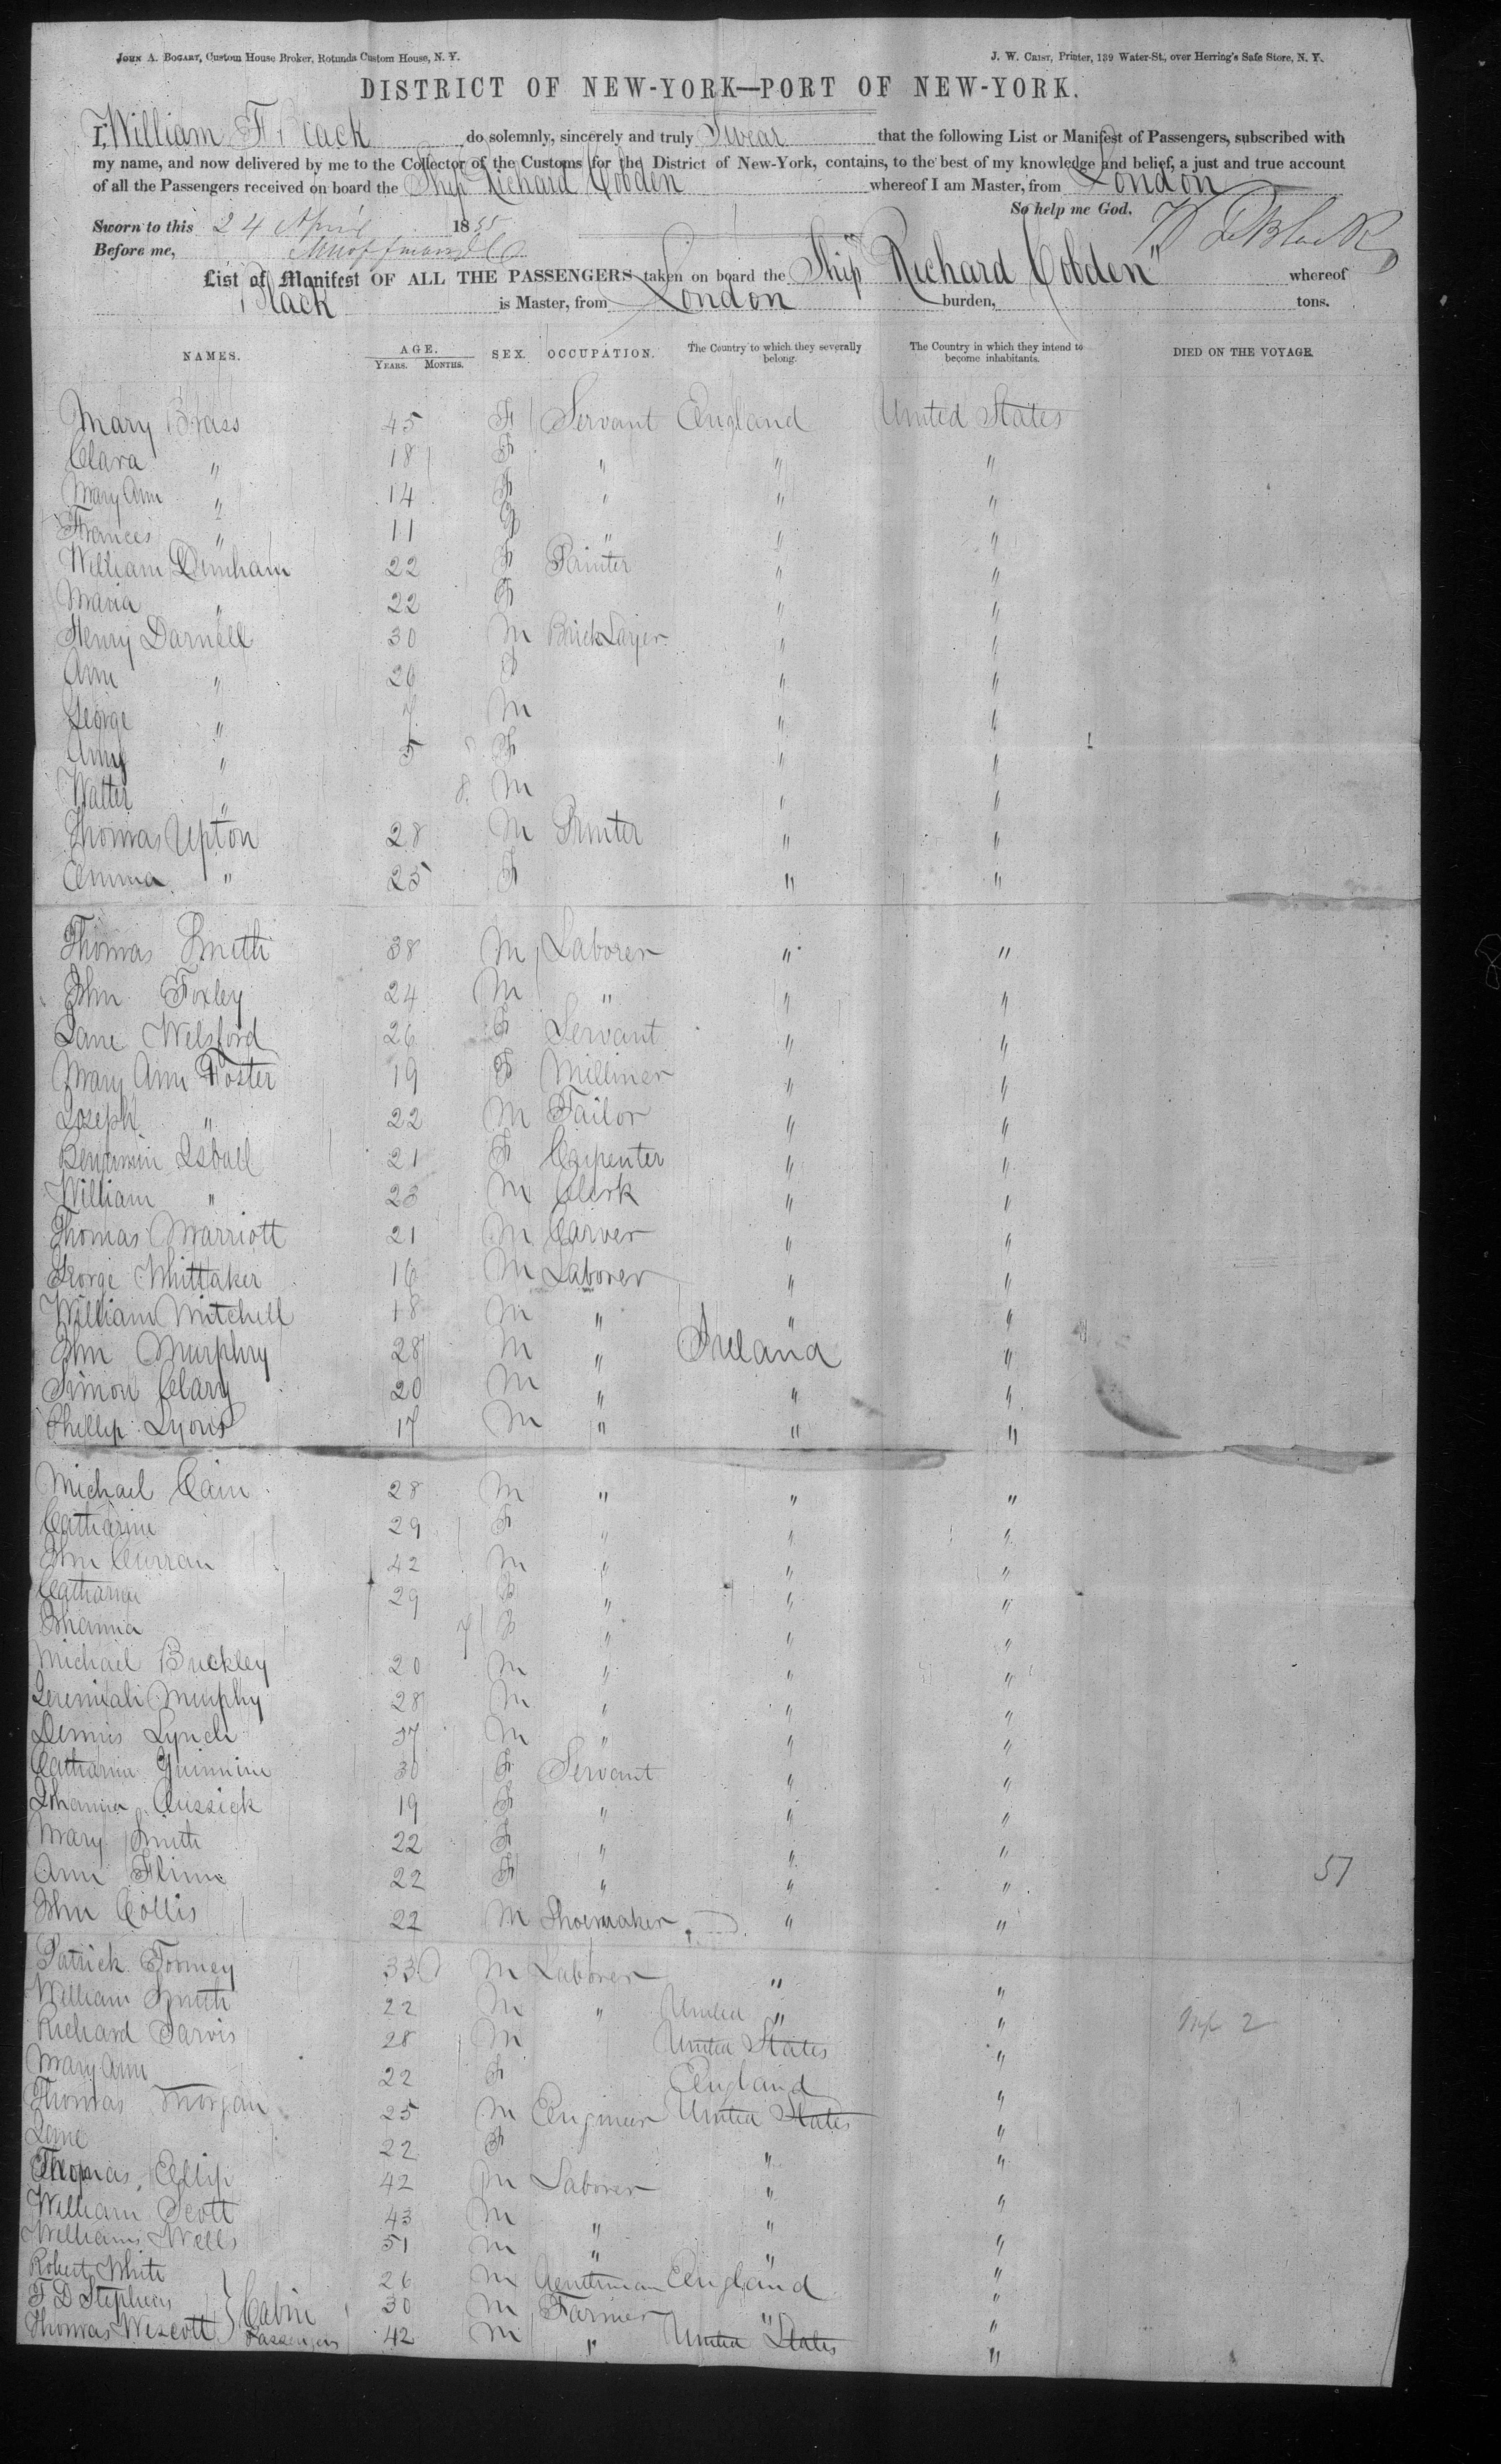 JOHN A. BOGART, Custom House Broker, Rotunda Custom House, N. Y.
J. W. CRIST, Printer, 139 Water-St., over Herring's Safe Store, N. Y.
DISTRICT OF NEW-YORK—PORT OF NEW-YORK.
I, William F Black do solemnly, sincerely and truly Swear that the following List or Manifest of Passengers, subscribed with
my name, and now delivered by me to the Collector of the Customs for the District of New-York, contains, to the best of my knowledge and belief, a just and true account
of all the Passengers received on board the Ship Richard Cobden whereof I am Master, from London
So help me God.
Sworn to this 24 April 1855
Before me,
List of Manifest OF ALL THE PASSENGERS taken on board the Ship "Richard Cobden" whereof
Black is Master, from London burden, tons.
NAMES. AGE. YEARS. MONTHS. SEX. OCCUPATION. The Country to which they severally belong. The Country in which they intend to become inhabitants. DIED ON THE VOYAGE.
Mary Brass 45 F Servant England United States
Clara " 18 F " " "
Mary Ann " 14 F " " "
Frances " 11 F " " "
William Dunham 22 F Printer " "
Maria " 22 F " "
Henry Darnell 30 M Brick Layer " "
Ann " 26 F " "
George " 7 M " "
Amy " 5 F " "
Walter " 8 M " "
Thomas Upton 28 M Printer " "
Emma " 25 F " "
Thomas Smith 38 M Laborer " "
John Foxley 24 M " " "
Jane Welsford 26 F Servant " "
Mary Ann Foster 19 F Milliner " "
Joseph " 22 M Tailor " "
Benjamin Isball 21 F Carpenter " "
William " 23 M Clerk " "
Thomas Marriott 21 M Carver " "
George Whittaker 16 M Laborer " "
William Mitchell 18 M " " "
John Murphry 28 M " Ireland "
Simon Clary 20 M " " "
Phillip Lyons 17 M " " "
Michael Cain 28 M " " "
Catharine 29 F " " "
John Curran 42 M " " "
Catharine 29 F " " "
Johanna 7 F " " "
Michael Buckley 20 M " " "
Jeremiah Murphy 28 M " " "
Dennis Lynch 37 M " " "
Catharine 30 F Servant " "
Johanna Cussick 19 F " " "
Mary Smith 22 F " " "
Ann Flinn 22 F " " " 57
John Collis 22 M Shoemaker " "
Patrick Toomey 33 M Laborer " "
William Smith 22 M " United " "
Richard Jarvis 28 M United States " 2
Mary Ann 22 F England "
Thomas Morgan 25 M Engineer United States "
Jane 22 F " "
Thomas 42 M Laborer " "
William Scott 43 M " " "
William Wells 51 M " " "
Robert White 26 M Gentleman England "
F D Stephens 30 M Farmer " "
Thomas Wescott 42 M " United States "
Cabin Passengers